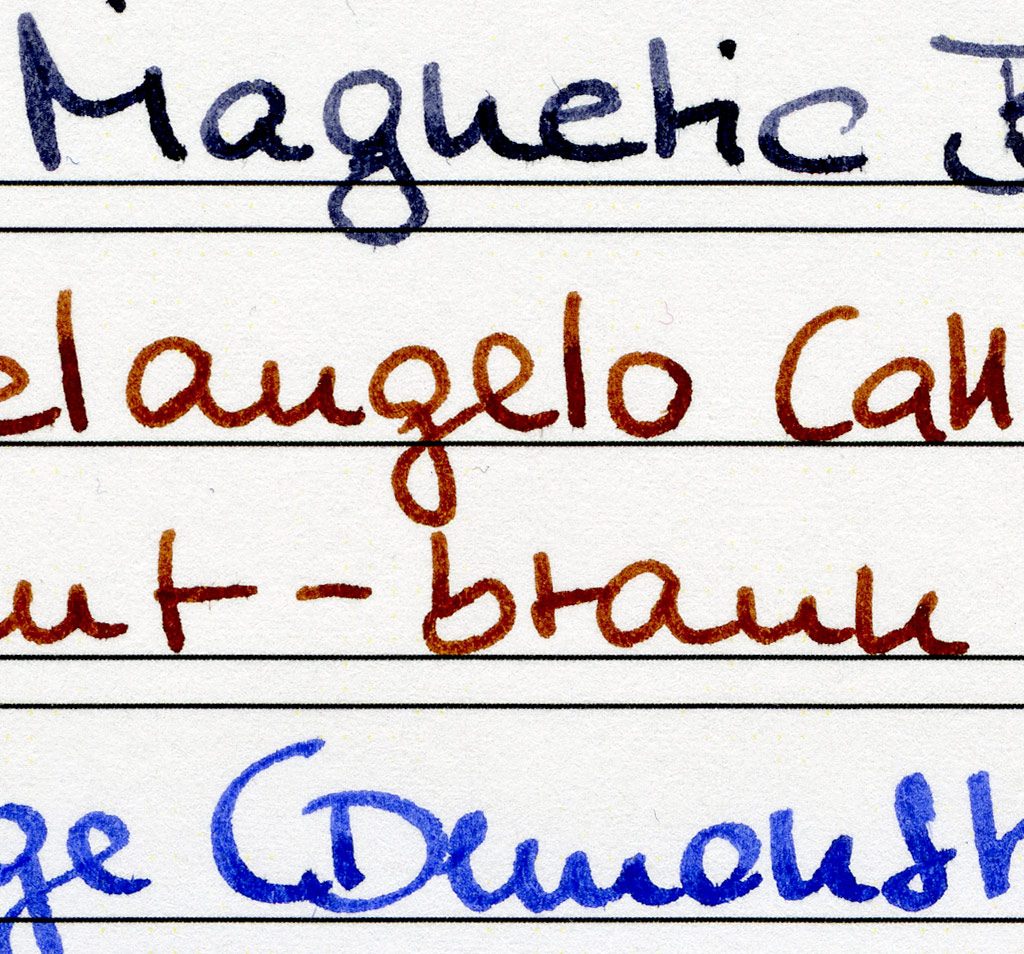 Magnetic
elangelo Call
- braun
ge (Demonst